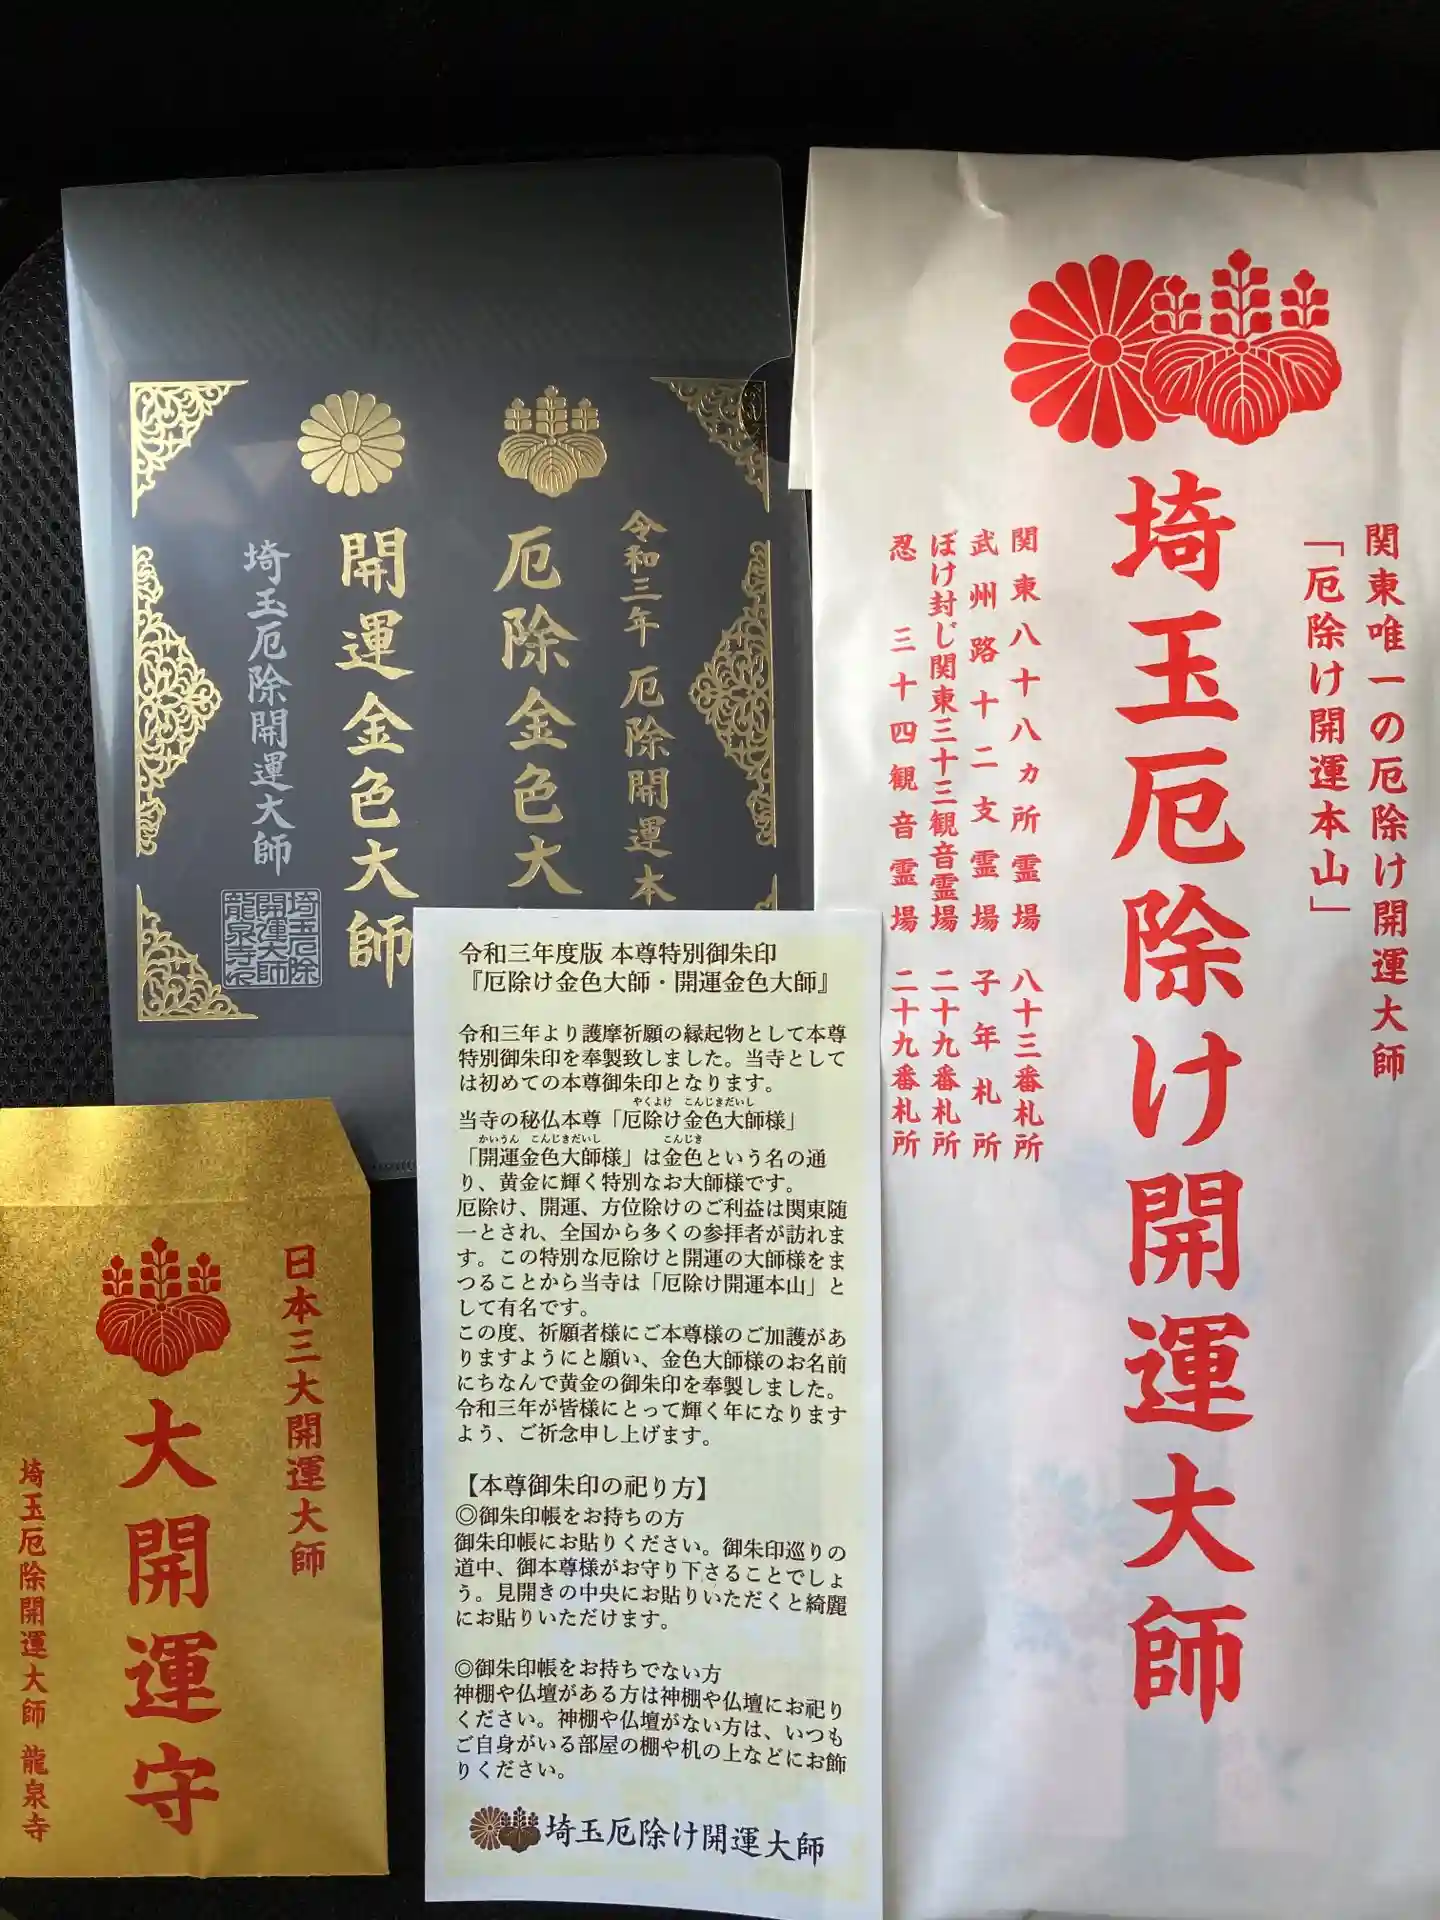 関東唯一の厄除け開運大師
「厄除け開運本山」
埼玉厄除け開運大師
関東八十八ヵ所霊場 八十三番札所
武州路十二支霊場 子年札所
ぼけ封じ関東三十三観音霊場 二十九番札所
忍三十四観音霊場 二十九番札所
令和三年 厄除開運本
厄除金色大
開運金色大師
埼玉厄除開運大師
埼玉厄除
開運大師
龍泉寺印
令和三年度版 本尊特別御朱印
『厄除け金色大師・開運金色大師』
令和三年より護摩祈願の縁起物として本尊
特別御朱印を奉製致しました。当寺として
は初めての本尊御朱印となります。
やくよけ こんじきだいし
当寺の秘仏本尊「厄除け金色大師様」
かいうん こんじきだいし こんじき
「開運金色大師様」は金色という名の通
り、黄金に輝く特別なお大師様です。
厄除け、開運、方位除けのご利益は関東随
一とされ、全国から多くの参拝者が訪れま
す。この特別な厄除けと開運の大師様をま
つることから当寺は「厄除け開運本山」と
して有名です。
この度、祈願者様にご本尊様のご加護があ
りますようにと願い、金色大師様のお名前
にちなんで黄金の御朱印を奉製しました。
令和三年が皆様にとって輝く年になります
よう、ご祈念申し上げます。
【本尊御朱印の祀り方】
◎御朱印帳をお持ちの方
御朱印帳にお貼りください。御朱印巡りの
道中、御本尊様がお守り下さることでしょ
う。見開きの中央にお貼りいただくと綺麗
にお貼りいただけます。
◎御朱印帳をお持ちでない方
神棚や仏壇がある方は神棚や仏壇にお祀り
ください。神棚や仏壇がない方は、いつも
ご自身がいる部屋の棚や机の上などにお飾
りください。
埼玉厄除け開運大師
日本三大開運大師
大開運守
埼玉厄除開運大師 龍泉寺